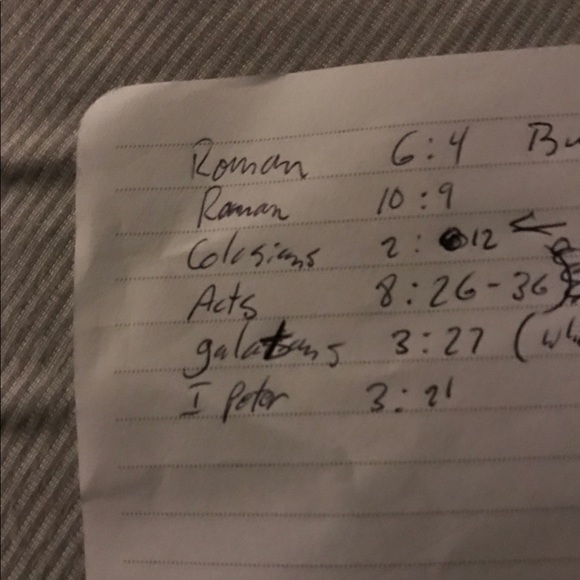 Roman 6:4 Bu
Roman 10:9
Colosians 2: 12 ←
Acts 8:26-36
galatians 3:27 (wh
I Peter 3:21